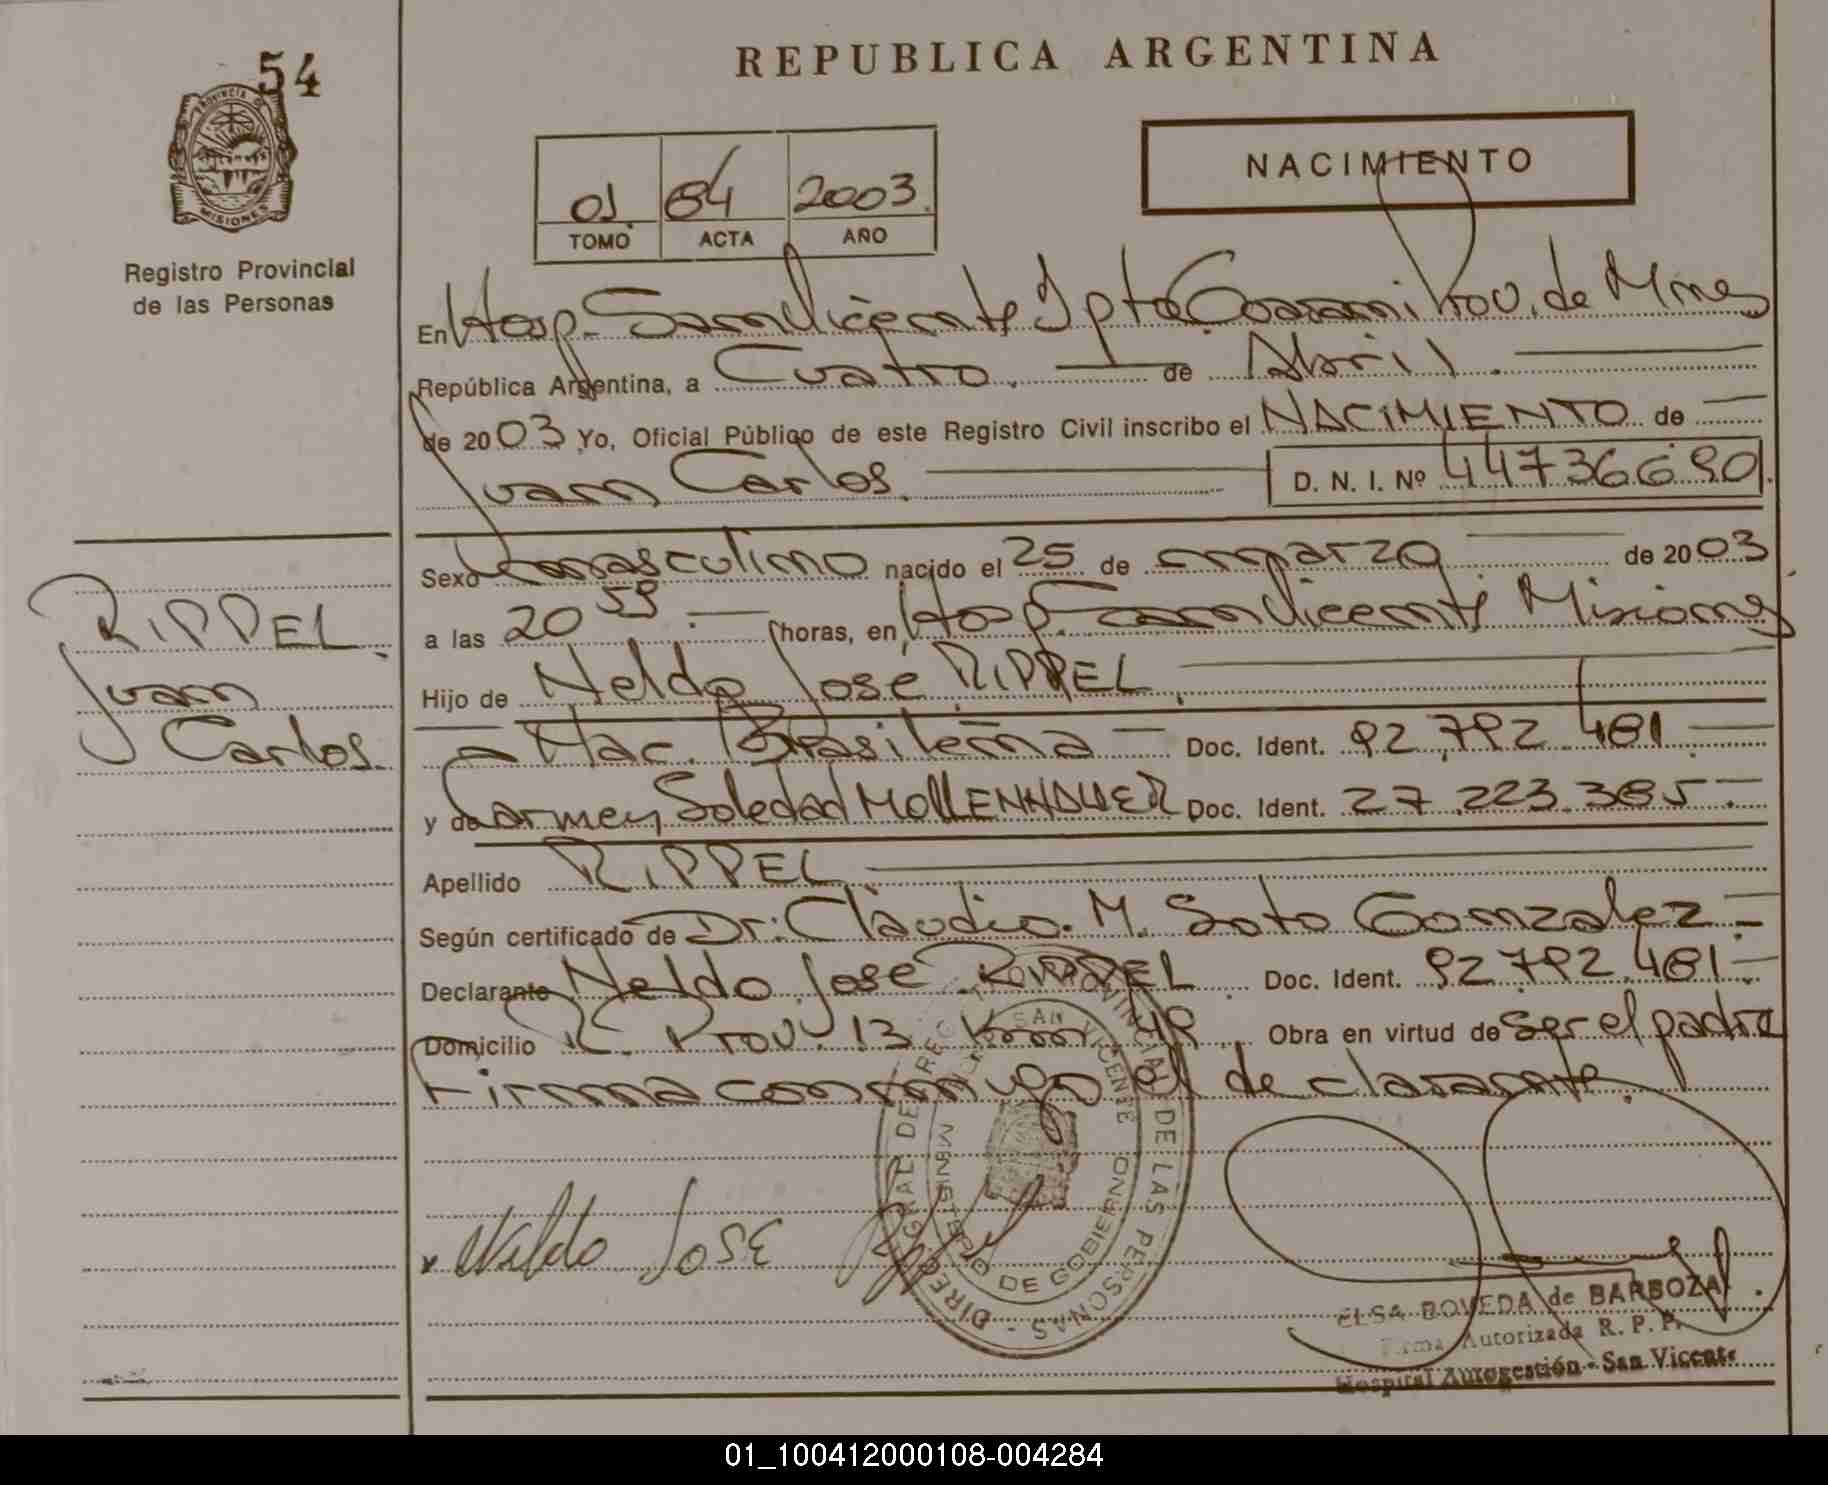 54
PROVINCIA DE
MISIONES
Registro Provincial
de las Personas
REPUBLICA ARGENTINA
01 84 2003
TOMO ACTA AÑO
NACIMIENTO
En Hosp. San Vicente Dpto Guarani Prov. de Mnes
República Argentina, a Cuatro. de Abril.
de 2003 Yo, Oficial Público de este Registro Civil inscribo el NACIMIENTO de
Juan Carlos. D. N. I. Nº 44736690
Sexo masculino nacido el 25 de marzo de 2003
a las 20 59 horas, en Hosp. San Vicente Misiones
Hijo de Neldo José RIPPEL.
Nac. Brasileña Doc. Ident. 92.792.481
y de Carmen Soledad MOLLENHAUER Doc. Ident. 27.223.385
Apellido RIPPEL
Según certificado de Dr: Claudio. M. Soto Gonzalez
Declarante Neldo José RIPPEL Doc. Ident. 92.792.481
Domicilio R. Prov. 13 Obra en virtud de ser el padre
Firma conmigo el declarante.
RIPPEL
Juan
Carlos.
SAN VICENTE
MINISTERIO DE GOBIERNO
DE LAS PERSONAS
JOSE
ELSA BOVEDA de BARBOZA
Firma Autorizada R. P. P.
Hospital Autogestión - San Vicente
01_100412000108-004284